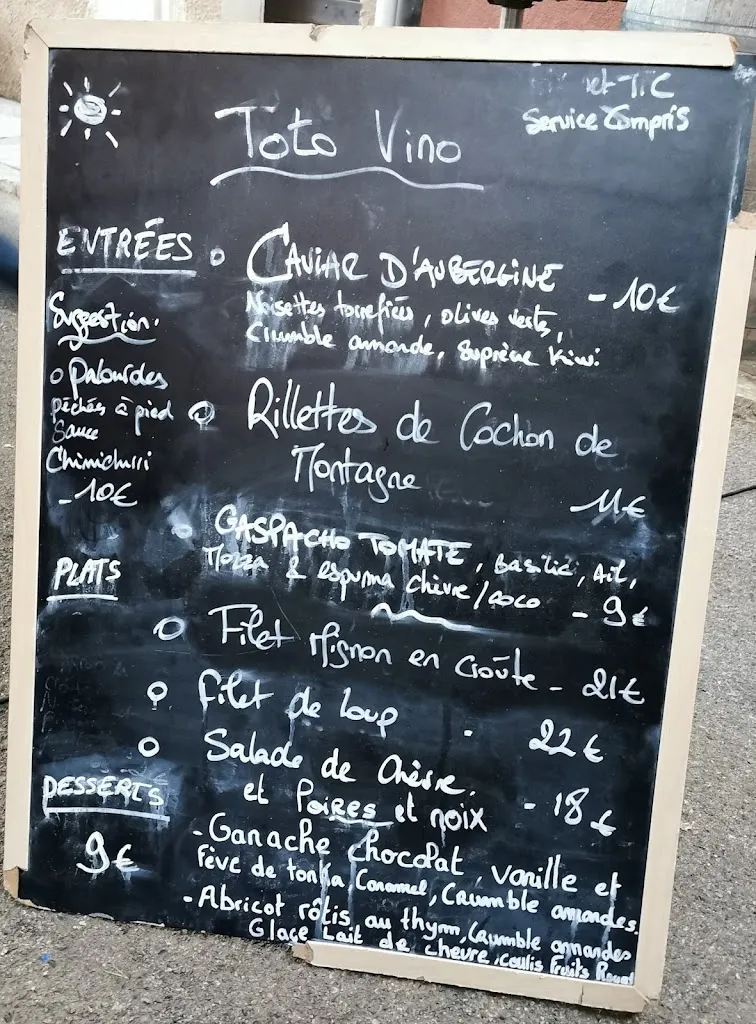 et TTC
Service Compris
Toto Vino
ENTRÉES
CAVIAR D'AUBERGINE - 10€
Noisettes torrefiées, olives vertes,
Crumble amande, Suprème Kiwi.
Suggestion.
Palourdes
pêchées à pied
Sauce
Chimichurri
- 10€
Rillettes de Cochon de
Montagne 11€
GASPACHO TOMATE, Basilic, Ail,
Mozza & espuma chèvre/coco - 9€
PLATS
Filet Mignon en Croûte - 21€
filet de loup 22€
Salade de Chèvre.
et Poires et noix - 18€
DESSERTS
9€
- Ganache chocolat, vanille et
Fève de tonka Caramel, Crumble amandes.
- Abricot rôtis au thym, Crumble amandes
Glace Lait de chevre, coulis Fruits Rouges